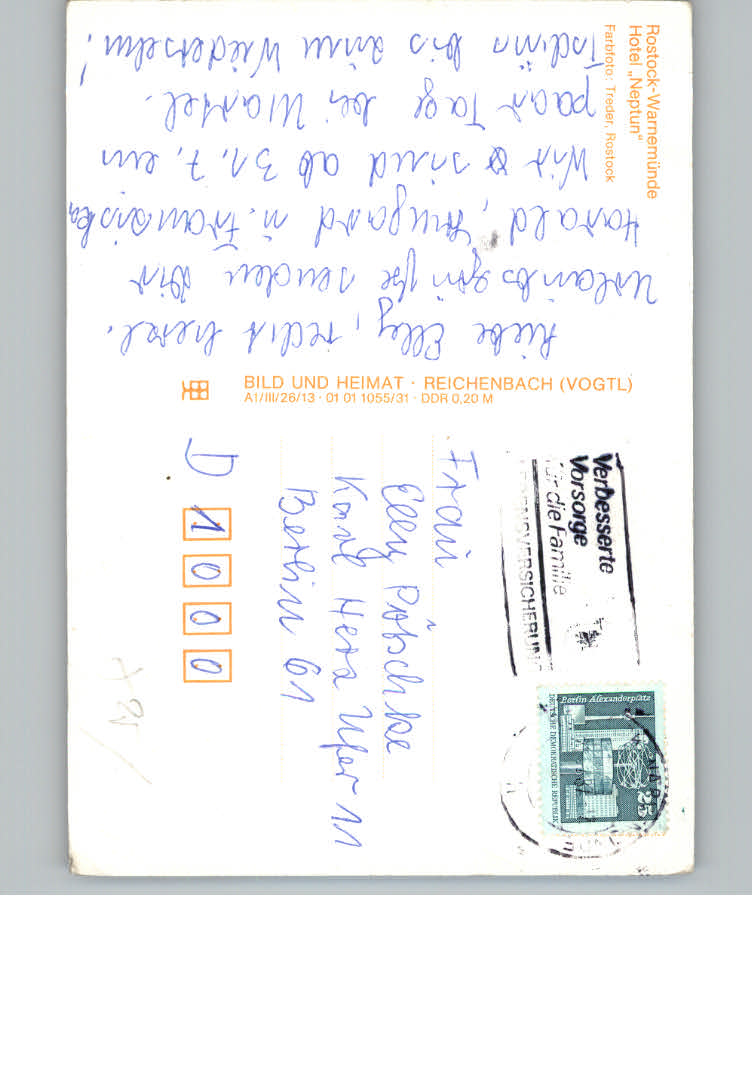 Rostock-Warnemünde
Hotel „Neptun“
Farbfoto: Treder, Rostock
Liebe Elly, recht herzl.
Urlaubsgrüße senden Dir
Harald, Irmgard u. Franziska
Wir sind ab 31.7. ein
paar Tage bei
bis zum Wiedersehn!
BILD UND HEIMAT · REICHENBACH (VOGTL)
A1/III/26/13 · 01 01 1055/31 · DDR 0,20 M
Verbesserte
Vorsorge
für die Familie
LEBENSVERSICHERUNG
Berlin Alexanderplatz
25
DEUTSCHE DEMOKRATISCHE REPUBLIK
Frau
Elly Pötschke
Karl Herz Ufer 11
Berlin 61
D 1000